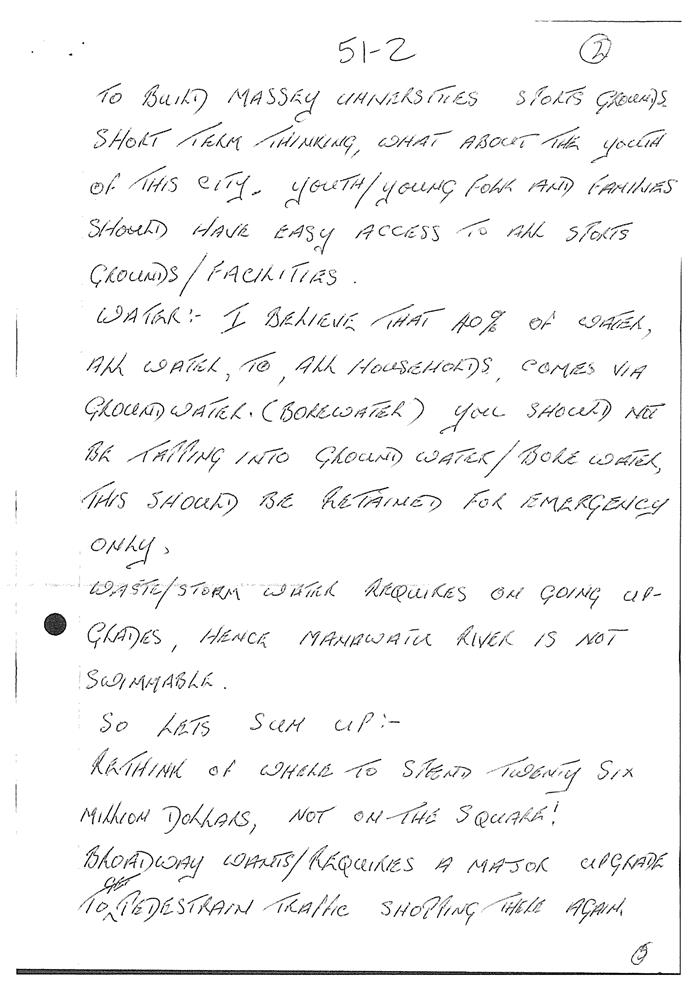 51-2
2
TO BUILD MASSEY UNIVERSITIES SPORTS GROUNDS.
SHORT TERM THINKING, WHAT ABOUT THE YOUTH
OF THIS CITY. YOUTH/YOUNG FOLK AND FAMILIES
SHOULD HAVE EASY ACCESS TO ALL SPORTS
GROUNDS/FACILITIES.
WATER:- I BELIEVE THAT 40% OF WATER,
ALL WATER, TO, ALL HOUSEHOLDS, COMES VIA
GROUNDWATER. (BOREWATER) YOU SHOULD NOT
BE TAPPING INTO GROUND WATER/BORE WATER,
THIS SHOULD BE RETAINED FOR EMERGENCY
ONLY.
WASTE/STORM WATER REQUIRES ON GOING UP-
GRADES, HENCE MANAWATU RIVER IS NOT
SWIMMABLE.
SO LETS SUM UP:-
RETHINK OF WHERE TO SPEND TWENTY SIX
MILLION DOLLARS, NOT ON THE SQUARE!
BROADWAY WANTS/REQUIRIES A MAJOR UPGRADE
TO GET PEDESTRAIN TRAFFIC SHOPPING THERE AGAIN.